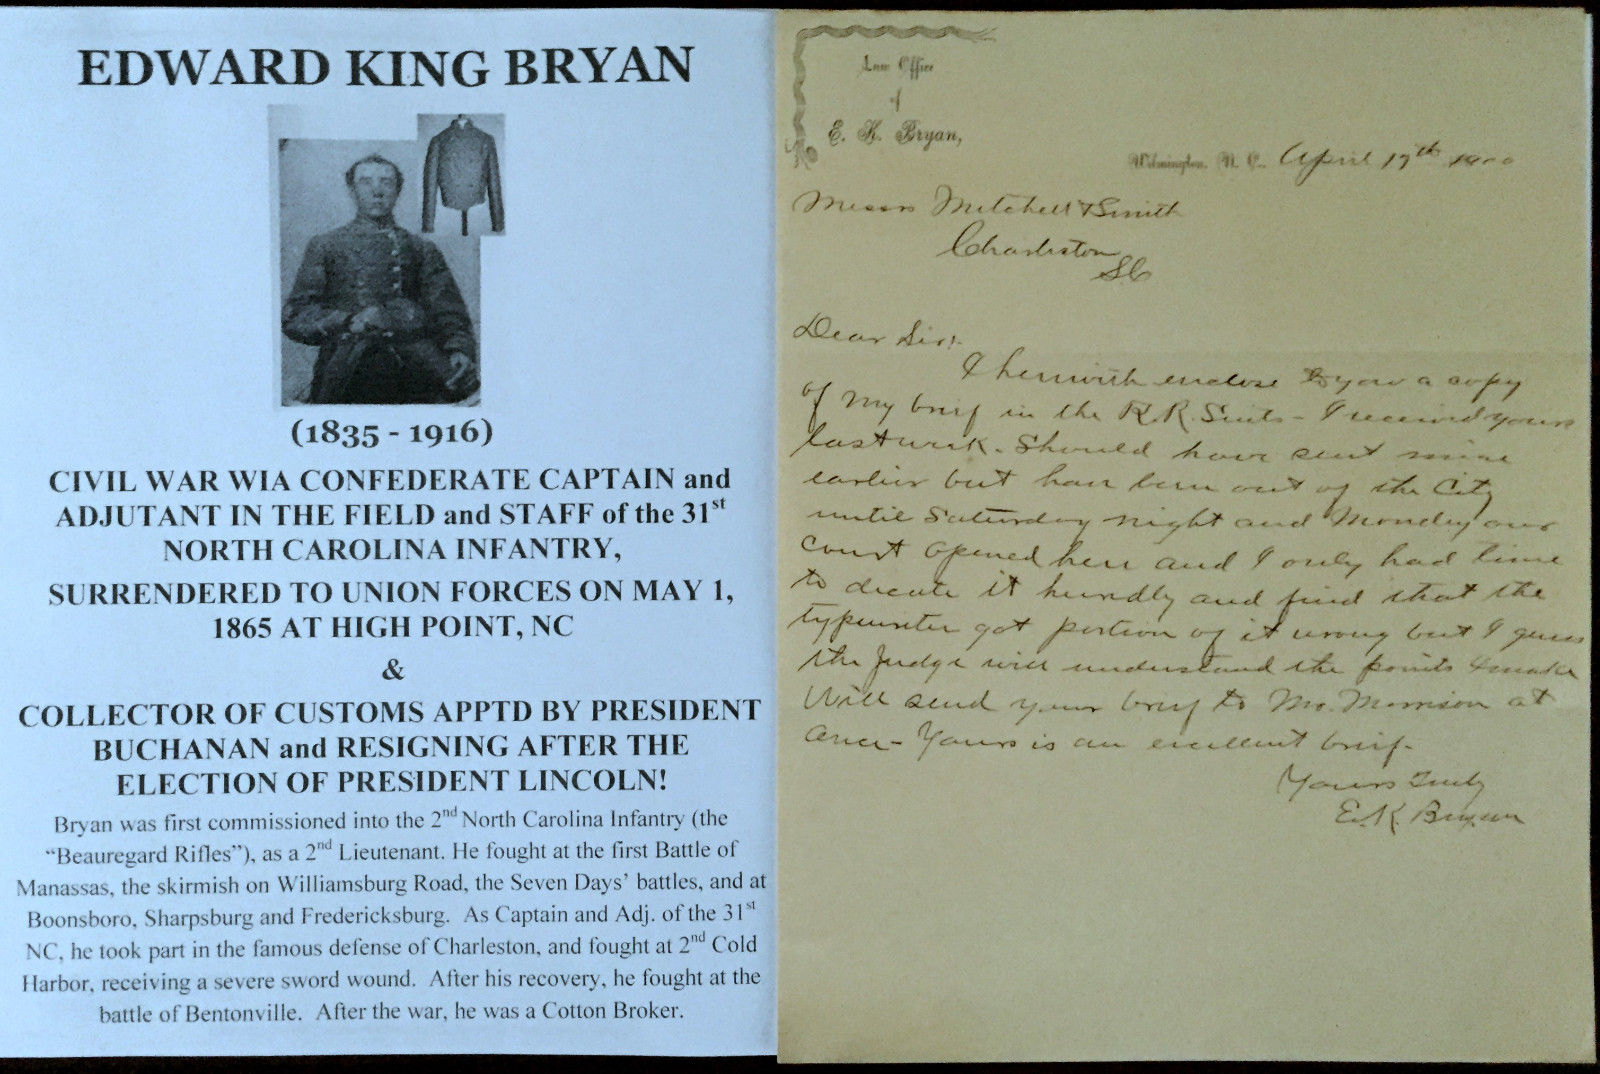 EDWARD KING BRYAN
(1835 - 1916)
CIVIL WAR WIA CONFEDERATE CAPTAIN and
ADJUTANT IN THE FIELD and STAFF of the 31st
NORTH CAROLINA INFANTRY,
SURRENDERED TO UNION FORCES ON MAY 1,
1865 AT HIGH POINT, NC
&
COLLECTOR OF CUSTOMS APPTD BY PRESIDENT
BUCHANAN and RESIGNING AFTER THE
ELECTION OF PRESIDENT LINCOLN!
Bryan was first commissioned into the 2nd North Carolina Infantry (the
“Beauregard Rifles”), as a 2nd Lieutenant. He fought at the first Battle of
Manassas, the skirmish on Williamsburg Road, the Seven Days’ battles, and at
Boonsboro, Sharpsburg and Fredericksburg. As Captain and Adj. of the 31st
NC, he took part in the famous defense of Charleston, and fought at 2nd Cold
Harbor, receiving a severe sword wound. After his recovery, he fought at the
battle of Bentonville. After the war, he was a Cotton Broker.
Law Office
of
E. K. Bryan,
Wilmington, N. C. April 17th 1900
Messrs Mitchell & Smith
Charleston
SC
Dear Sirs:
I herewith enclose to you a copy
of my brief in the R.R. Suits - I received yours
last week. Should have sent mine
earlier but have been out of the City
until Saturday night and Monday our
Court opened here and I only had time
to dicate it hurridly and find that the
typewriter got portion of it wrong but I guess
the Judge will understand the points I make
Will send your brief to Mr. Morrison at
once - Yours is an excellent brief.
Yours truly
E. K. Bryan